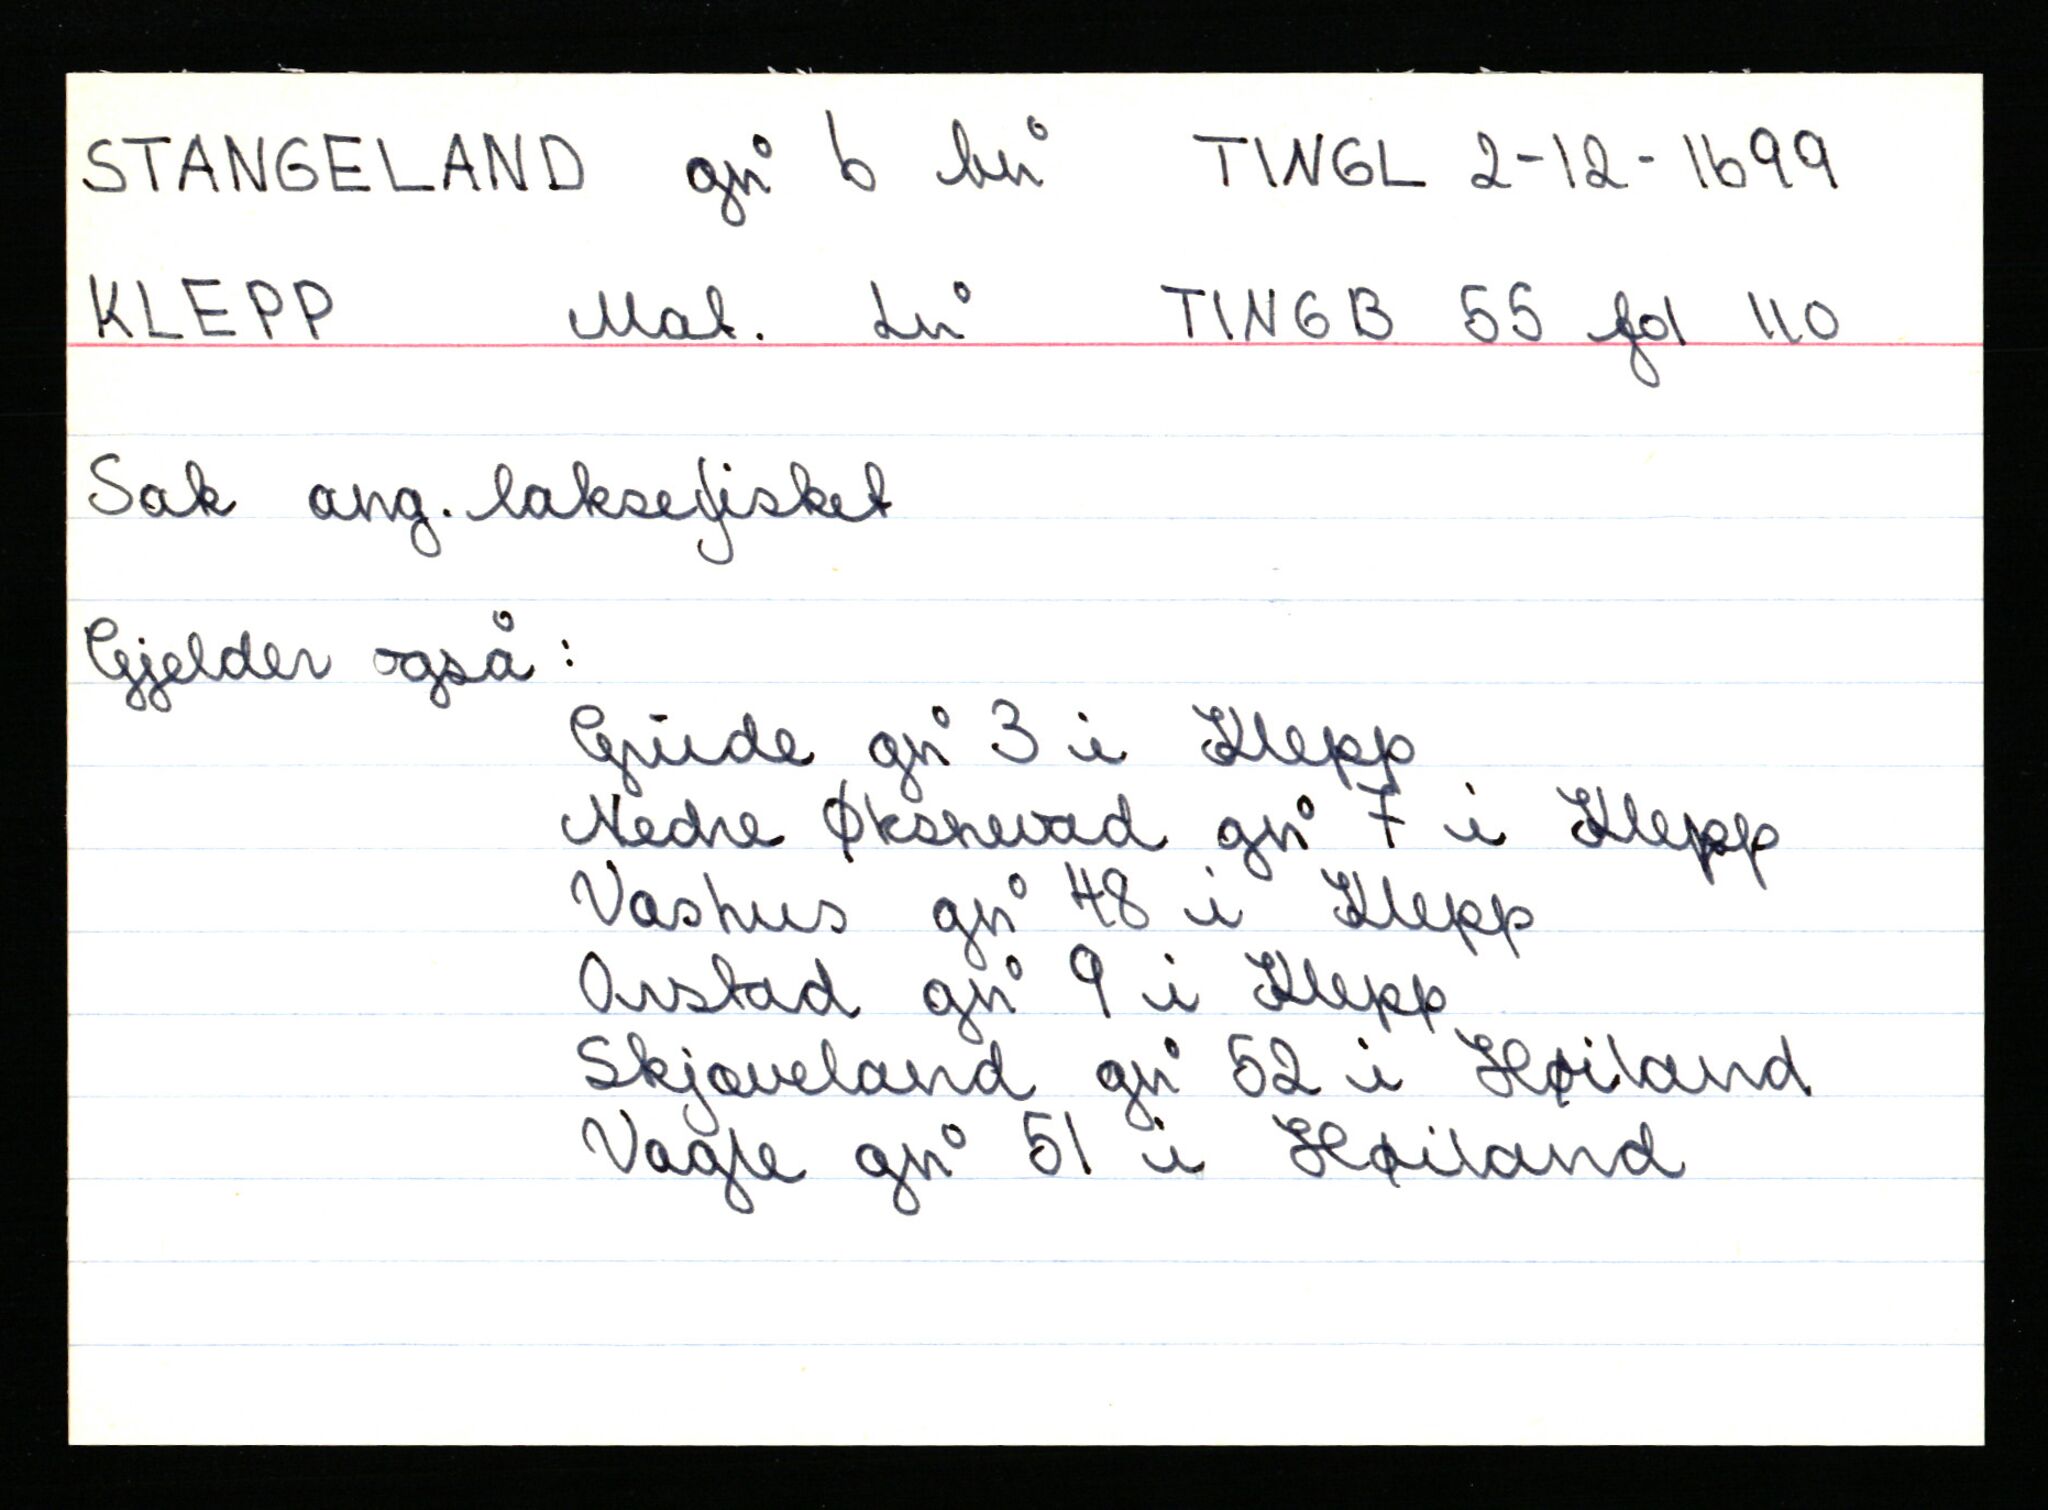 STANGELAND gnº 6 bnº TINGL 2-12-1699
KLEPP Mat. Lnº TINGB 55 fol 110
Sak ang. laksefisket
Gjelder også:
Grude gnº 3 i Klepp
Nedre Øksnevad gnº 7 i Klepp
Vashus gnº 48 i Klepp
Orstad gnº 9 i Klepp
Skjæveland gnº 52 i Høiland
Vagle gnº 51 i Høiland